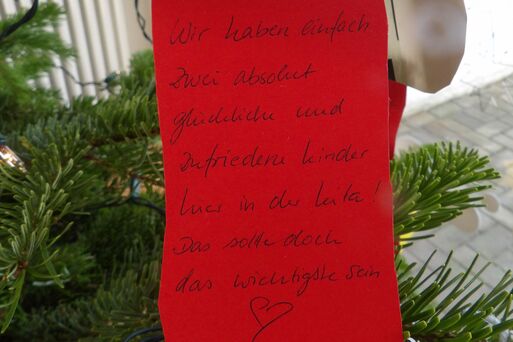 Wir haben einfach
zwei absolut
glückliche und
zufriedene Kinder
hier in der Kita!
Das sollte doch
das wichtigste sein